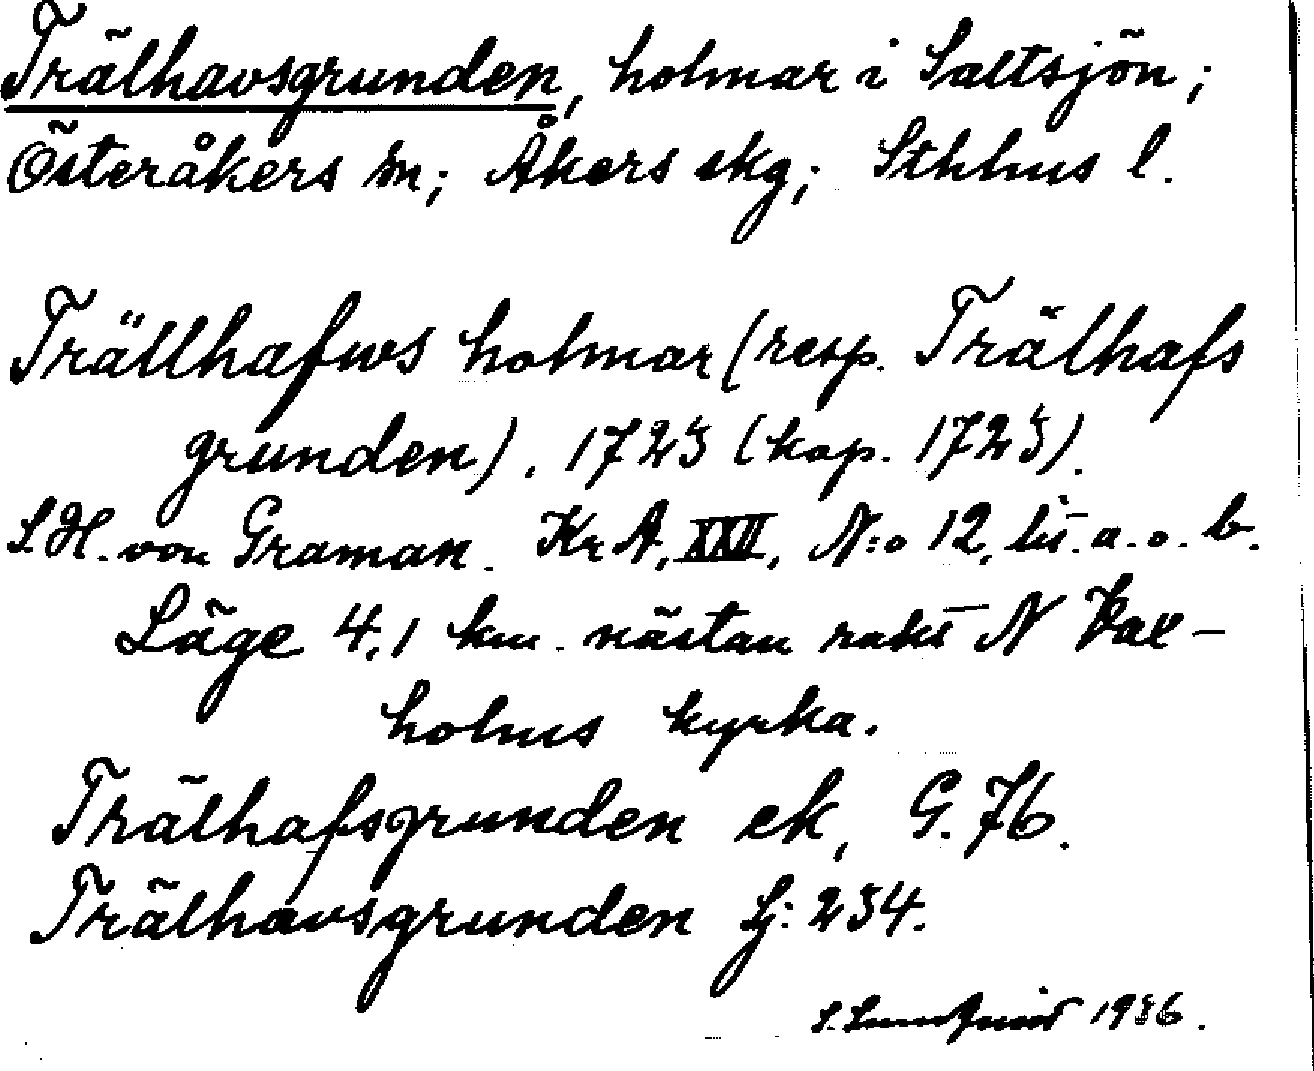 Trälhavsgrunden, holmar i Saltsjön;
Österåkers sn; Åkers skg; Sthlms l.
Trällhafws holmar (resp. Trälhafs
grunden). 1725 (kop. 1725).
S.H. von Graman. KrA, XXII, N:o 12, lit. a. o. b.
Läge 4,1 km. nästan rakt N Vax-
holms kyrka.
Trälhafsgrunden ek, G. 76.
Trälhavsgrunden Sj: 234.
1936.